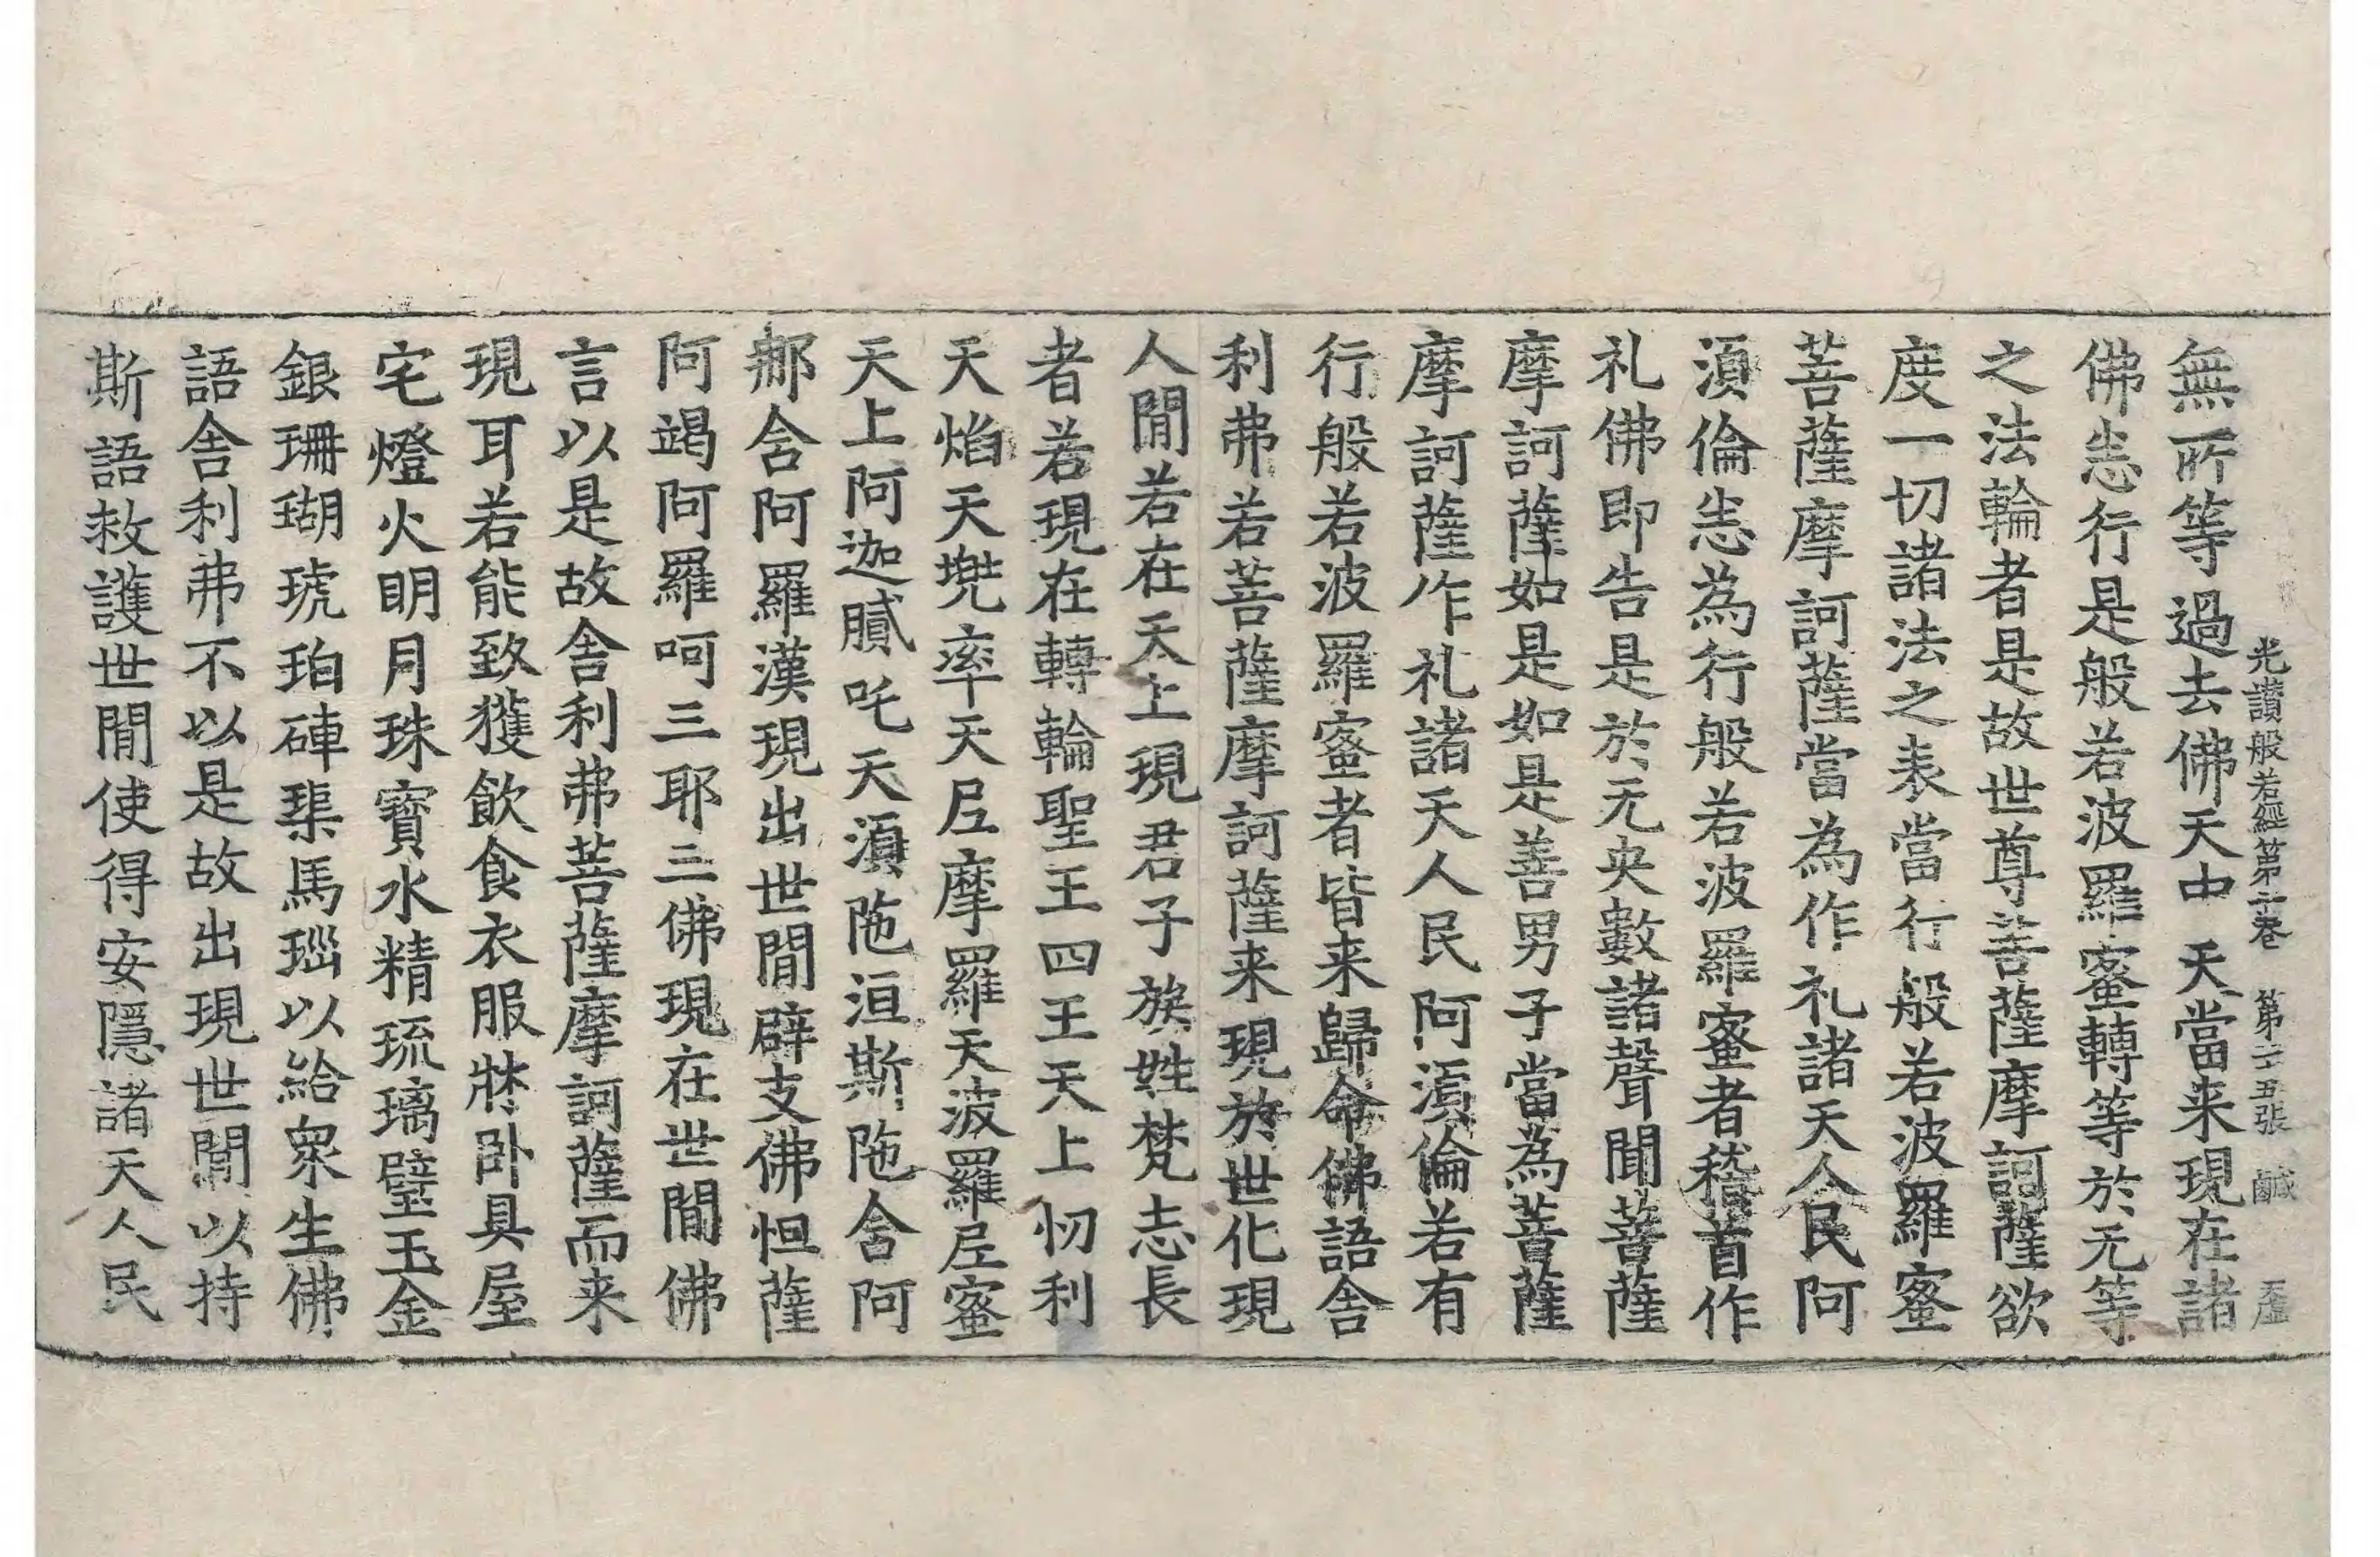 光讃般若經第二卷 第二五張 鹹
無所等過去佛天中天當来現在諸
佛悉行是般若波羅蜜轉等於无等
之法輪者是故世尊菩薩摩訶薩欲
度一切諸法之表當行般若波羅蜜
菩薩摩訶薩當為作礼諸天人民阿
湏倫悉為行般若波羅蜜者稽首作
礼佛即告是於无央數諸聲聞菩薩
摩訶薩如是如是善男子當為菩薩
摩訶薩作礼諸天人民阿湏倫若有
行般若波羅蜜者皆来歸命佛語舎
利弗若菩薩摩訶薩来現於世化現
人閒若在天上現君子族姓梵志長
者若現在轉輪聖王四王天上忉利
天焰天兠率天尼摩羅天波羅尼蜜
天上阿迦膩吒天湏陁洹斯陁含阿
那含阿羅漢現出世閒辟支佛怛薩
阿竭阿羅呵三耶三佛現在世閒佛
言以是故舎利弗菩薩摩訶薩而来
現耳若能致獲飲食衣服牀卧具屋
宅燈火明月珠寳水精琉璃璧玉金
銀珊瑚琥珀硨磲馬瑙以給衆生佛
語舎利弗不以是故出現世閒以持
斯語救護世閒使得安隱諸天人民